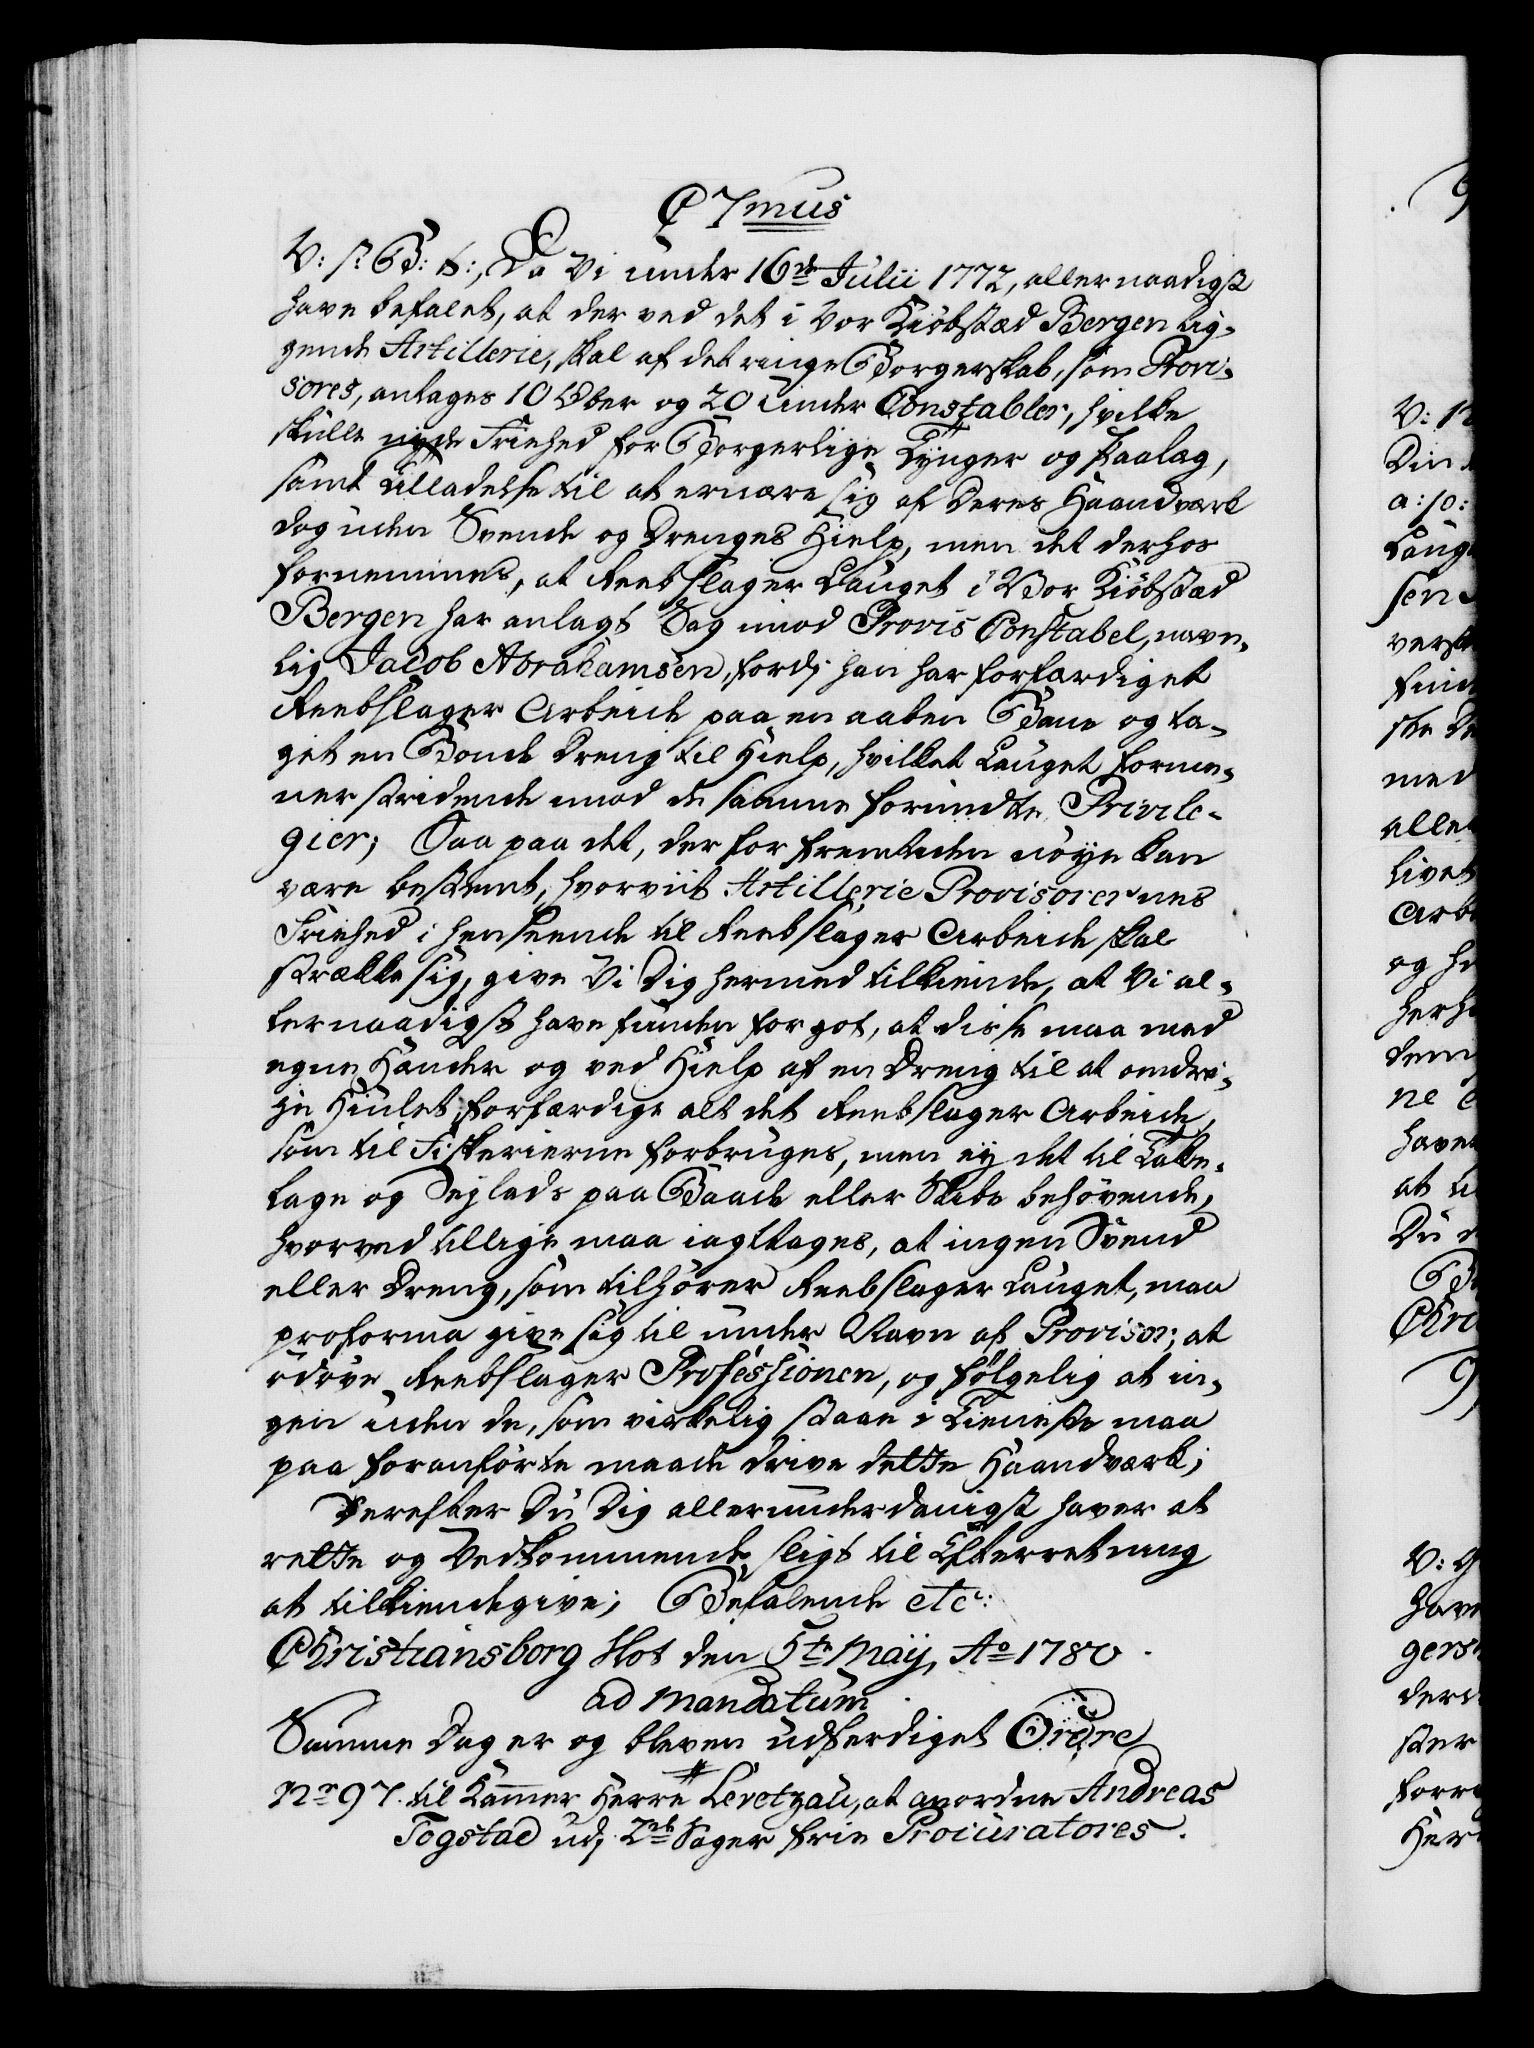 C 7mus
V: s: G: t:, Da Vi under 16de Julii 1772, allernaadigst
have befalet, at der ved det i Vor Kiöbstad Bergen lig-
gende Artillerie, skal af det ringe Borgerskab, som Provi-
sores, antages 10 Ober og 20 Under Constabler, hvilke
skulle nyde Friehed for Borgerlige Tynger og Paalag,
samt Tilladelse til at ernære sig af Deres Haandværk
dog uden Svende og Drenges Hielp, men det derhos
fornemmes, at Reebslager Lauget i Vor Kiöbstad
Bergen har anlagt Sag imod Provis Constabel, navn-
lig Jacob Abrahamsen, fordj han har forfærdiget
Reebslager Arbeide paa en aaben Bane og ta-
get en Bonde Dreng til Hielp, hvilket Lauget forme-
ner stridende imod de samme forundte Privile-
gier; Saa paa det, der for fremtiden nöye kan
være bestemt, hvorviit Artillerie Provisorernes
Friehed i henseende til Reebslager Arbeide skal
strække sig, give Vi Dig hermed tilkiende, at Vi al-
lernaadigst have funden for got, at disse maa med
egne Hænder og ved Hielp af en Dreng til at omdre-
je Hiulet, forfærdige alt det Reebslager Arbeide,
som til Fiskerierne forbruges, men ey det til Takke-
lage og Sejlads paa Baade eller Skibe behövende,
hvorved tillige maa iagttages, at ingen Svend
eller Dreng, som tilhörer Reebslager Lauget, maa
proforma give sig til under Navn af Provisor, at
udöve Reebslager Professionen, og fölgelig at in-
gen uden de, som virkelig staae i Tieneste maa
paa foranförte maade drive dette Haandværk;
Derefter Du Dig allerunderdanigst haver at
rette og Vedkommende sligt til Efterretning
at tilkiendegive; Befalende etc:
Christiansborg Slot den 5te Maÿ, Ao 1780.
ad mandatum
Samme Dag er og bleven udferdiget Ordre
No 97. til Kammer Herre Levetzau, at anordne Andreas
Togstad udj 2de Sager frie Procuratores.